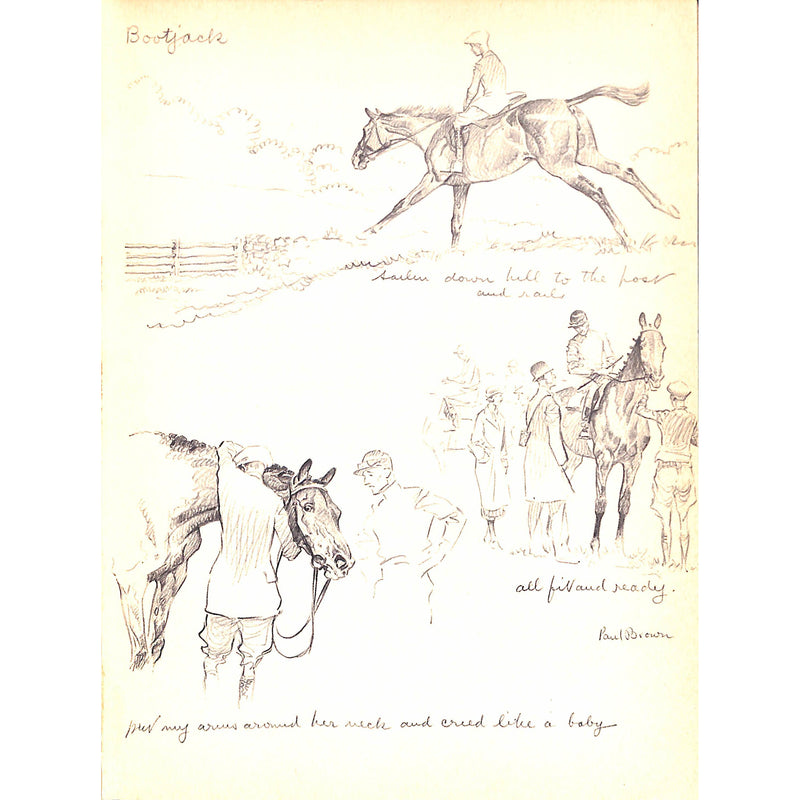 Bootjack
sailin down hill to the post
and rails
all fit and ready.
Paul Brown
put my arms around her neck and cried like a baby